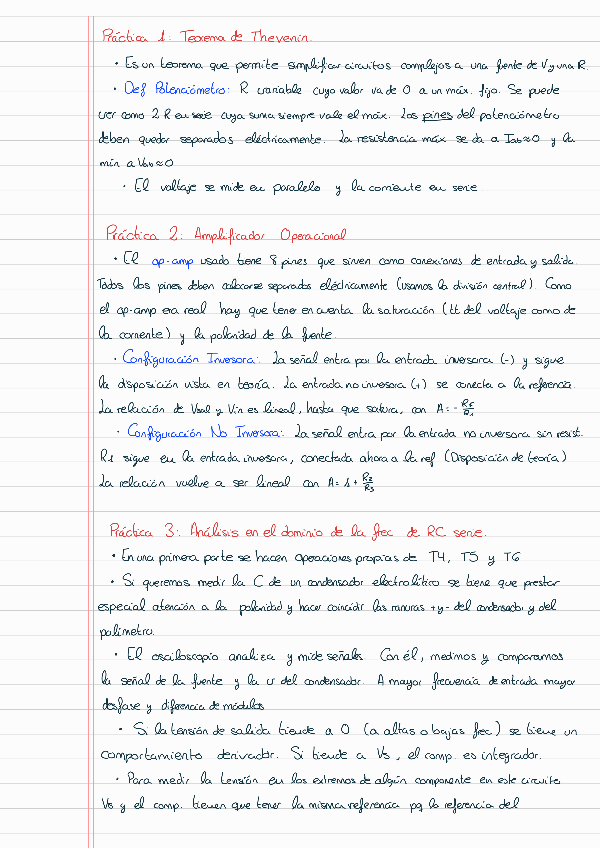 Práctica 1: Teorema de Thevenin.
· Es un teorema que permite simplificar circuitos complejos a una fuente de V y una R.
· Def Potenciómetro: R variable cuyo valor va de 0 a un máx. fijo. Se puede
ver como 2 R en serie cuya suma siempre vale el máx. Los pines del potenciómetro
deben quedar separados eléctricamente. La resistencia máx se da a Iab≈0 y la
mín a Vab≈0
· El voltaje se mide en paralelo y la corriente en serie
Práctica 2: Amplificador Operacional
· El op-amp usado tiene 8 pines que sirven como conexiones de entrada y salida.
Todos los pines deben colocarse separados eléctricamente (usamos la división central). Como
el op-amp era real hay que tener en cuenta la saturación (tt del voltaje como de
la corriente) y la polaridad de la fuente.
· Configuración Inversora: La señal entra por la entrada inversora (-) y sigue
la disposición vista en teoría. La entrada no inversora (+) se conecta a la referencia.
La relación de Vsal y Vin es lineal, hasta que satura, con A = -
· Configuración No Inversora: La señal entra por la entrada no inversora sin resist.
R1 sigue en la entrada inversora, conectada ahora a la ref (Disposición de teoría)
La relación vuelve a ser lineal con A = 1 +
Práctica 3: Análisis en el dominio de la frec de RC serie.
· En una primera parte se hacen operaciones propias de T4, T5 y T6
· Si queremos medir la C de un condensador electrolítico se tiene que prestar
especial atención a la polaridad y hacer coincidir las ranuras + y - del condensador y del
polímetro.
· El osciloscopio analiza y mide señales. Con él, medimos y comparamos
la señal de la fuente y la v del condensador. A mayor frecuencia de entrada mayor
desfase y diferencia de módulos
· Si la tensión de salida tiende a 0 (a altas o bajas frec) se tiene un
comportamiento derivador. Si tiende a Vs, el comp. es integrador.
· Para medir la tensión en los extremos de algún componente en este circuito
Vs y el comp. tienen que tener la misma referencia pq la referencia del